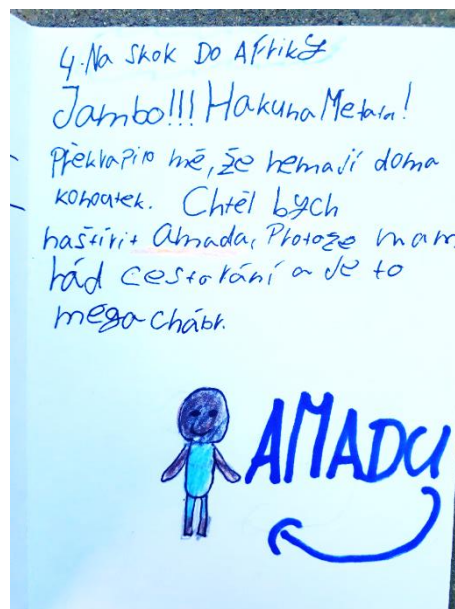 4. Na skok Do Afriky
Jambo!!! Hakuna Metata!
Překvapilo mě, že nemají doma
kohoutek. Chtěl bych
naštívit Amada, Protože mam
rád cestování a Je to
mega chábr.
AMADU